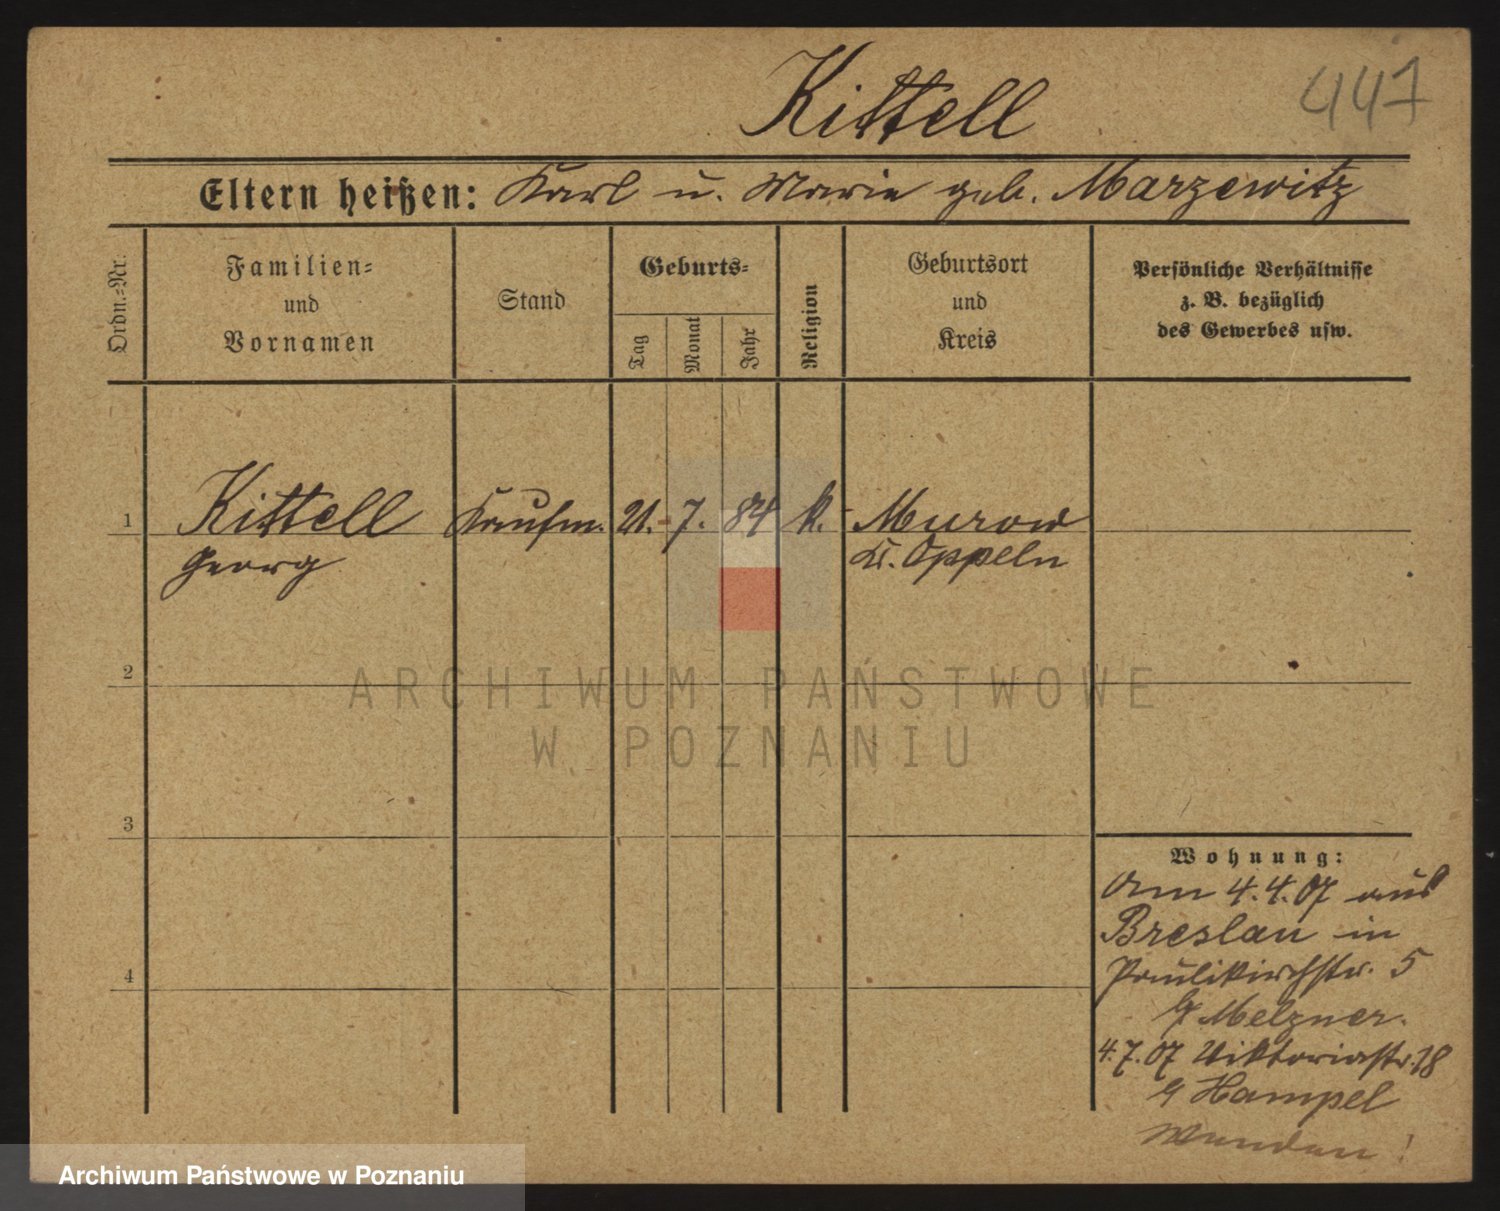 Kittell
447
Eltern heißen: Karl u. Marie geb. Marzewitz
Ordn.=Nr.
Familien=
und
Vornamen
Stand
Geburts=
Tag
Monat
Jahr
Religion
Geburtsort
und
Kreis
Persönliche Verhältnisse
z. B. bezüglich
des Gewerbes usw.
1
Kittell Kaufm. 21. 7. 84 k. Murow
Georg Kr. Oppeln
2
ARCHIWUM PAŃSTWOWE
W POZNANIU
3
Wohnung:
Am 4.4.07 aus
Breslau in
Paulikirchstr. 5
Melzner.
4
4.7.07 Viktoriastr. 18
Hampel
Archiwum Państwowe w Poznaniu